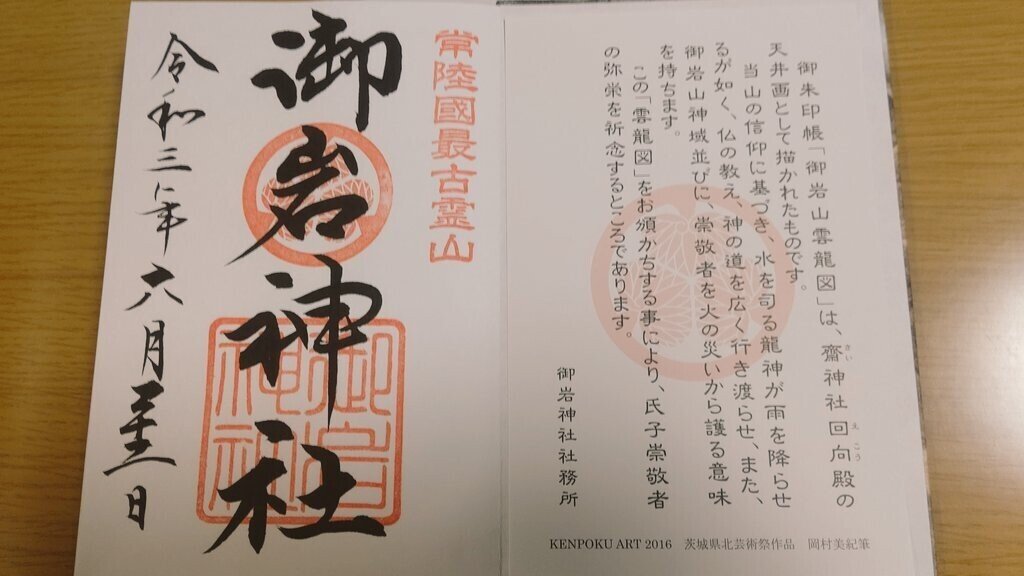 御朱印帳「御岩山雲龍図」は、齋神社回向殿の
さい
えこう
天井画として描かれたものです。
当山の信仰に基づき、水を司る龍神が雨を降らせ
るが如く、仏の教え、神の道を広く行き渡らせ、また、
御岩山神域並びに、崇敬者を火の災いから護る意味
を持ちます。
この「雲龍図」をお頒かちする事により、氏子崇敬者
の弥栄を祈念するところであります。
御岩神社社務所
KENPOKU ART 2016 茨城県北芸術祭作品 岡村美紀筆
常陸國最古霊山
御岩神社
御岩
神社
令和三年六月 日